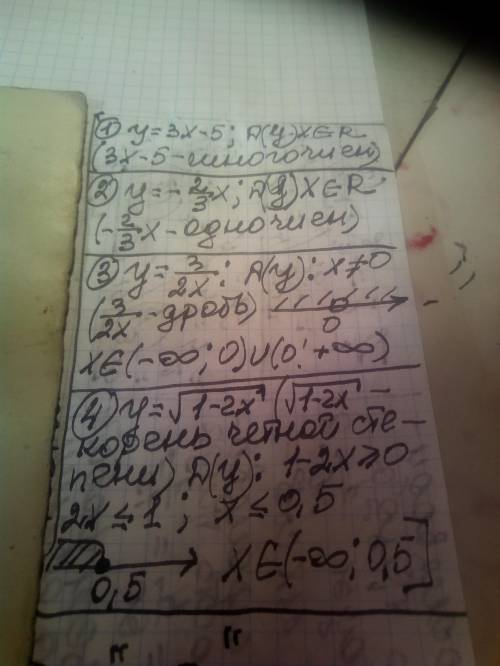 ① y=3x-5; D(y) x∈R
(3x-5-многочлен)
② y=-2/3x; D(y) x∈R
(-2/3x-одночлен)
③ y=3/2x; D(y): x≠0
(3/2x-дробь)
0
x∈(-∞; 0)∪(0; +∞)
④ y=√1-2x (√1-2x -
корень четной сте-
пени) D(y): 1-2x≥0
2x≤1; x≤0,5
0,5 x∈(-∞; 0,5]